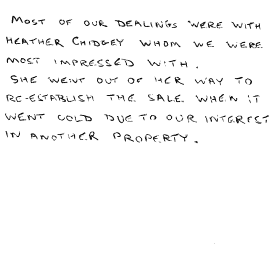 MOST OF OUR DEALINGS WERE WITH
HEATHER CHIDGEY WHOM WE WERE
MOST IMPRESSED WITH.
SHE WENT OUT OF HER WAY TO
RE-ESTABLISH THE SALE WHEN IT
WENT COLD DUE TO OUR INTEREST
IN ANOTHER PROPERTY.